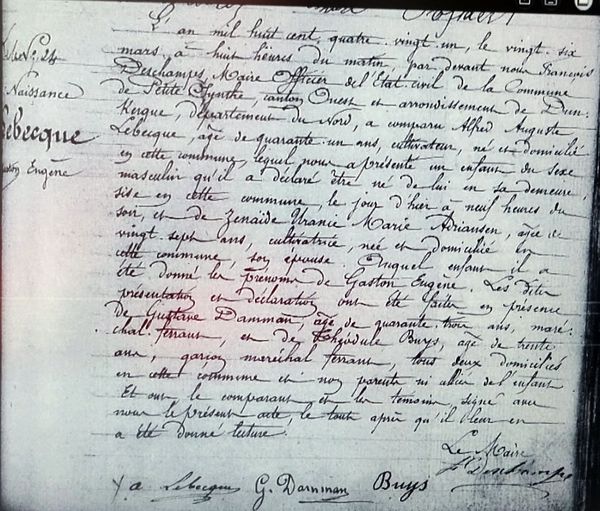 No. 24
Naissance
Lebecque
Gaston Eugène
L'an mil huit cent quatre-vingt-un, le vingt-six
mars, à huit heures du matin par devant nous François
Deschamps, Maire Officier de l'Etat civil de la Commune
de Petite Synthe, canton Ouest et arrondissement de Dun-
kerque, département du Nord, a comparu Alfred Auguste
Lebecque, âgé de quarante-un ans, cultivateur, né et domicilié
en cette commune, lequel nous a présenté un enfant du sexe
masculin qu'il a déclaré être né de lui en sa demeure,
sise en cette commune, le jour d'hier à neuf heures du
soir, et de Zénaïde Uranie Marie Adriansen, âgée de
vingt-sept ans, cultivatrice, née et domiciliée en
cette commune, son épouse, Auquel enfant il a
été donné les prénoms de Gaston Eugène. Les dites
présentation et déclaration ont été faites en présence
de Gustave Damman, âgé de quarante-trois ans, maré-
chal-ferrant, et de Théodule Buys, âgé de trente
ans, garçon maréchal ferrant, tous deux domiciliés
en cette commune et non parents ni alliés de l'enfant
Et ont le comparant et les témoins signé avec
nous le présent acte, le tout après qu'il leur en
a été donné lecture.
Le Maire
Deschamps
a Lebecque G. Damman Buys